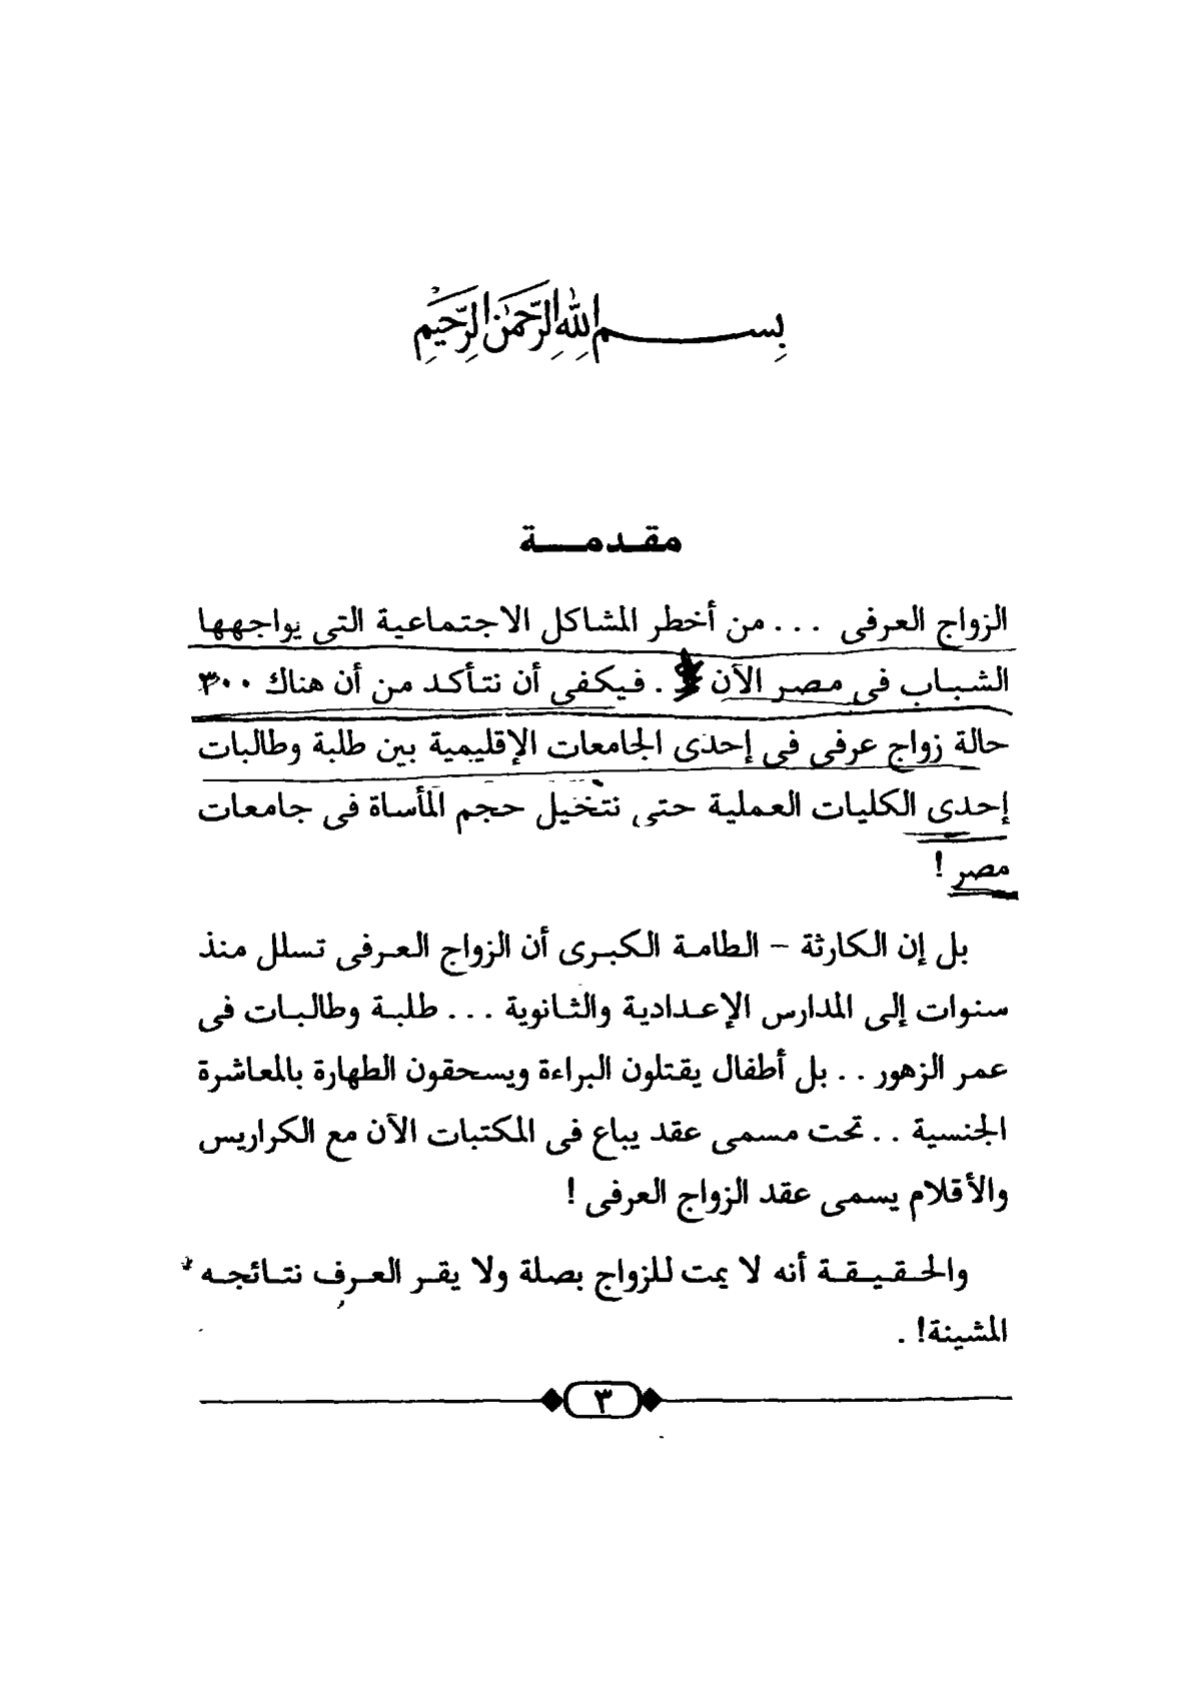 بسم الله الرحمن الرحيم
مقدمة
الزواج العرفى ... من أخطر المشاكل الاجتماعية التى يواجهها
الشباب فى مصر الآن . فيكفى أن نتأكد من أن هناك ٣٠٠
حالة زواج عرفى فى إحدى الجامعات الإقليمية بين طلبة وطالبات
إحدى الكليات العملية حتى نتخيل حجم المأساة فى جامعات
مصر !
بل إن الكارثة - الطامة الكبرى أن الزواج العرفى تسلل منذ
سنوات إلى المدارس الإعدادية والثانوية ... طلبة وطالبات فى
عمر الزهور .. بل أطفال يقتلون البراءة ويسحقون الطهارة بالمعاشرة
الجنسية .. تحت مسمى عقد يباع فى المكتبات الآن مع الكراريس
والأقلام يسمى عقد الزواج العرفى !
والحقيقة أنه لا يمت للزواج بصلة ولا يقر العرف نتائجه
المشينة! .
٣